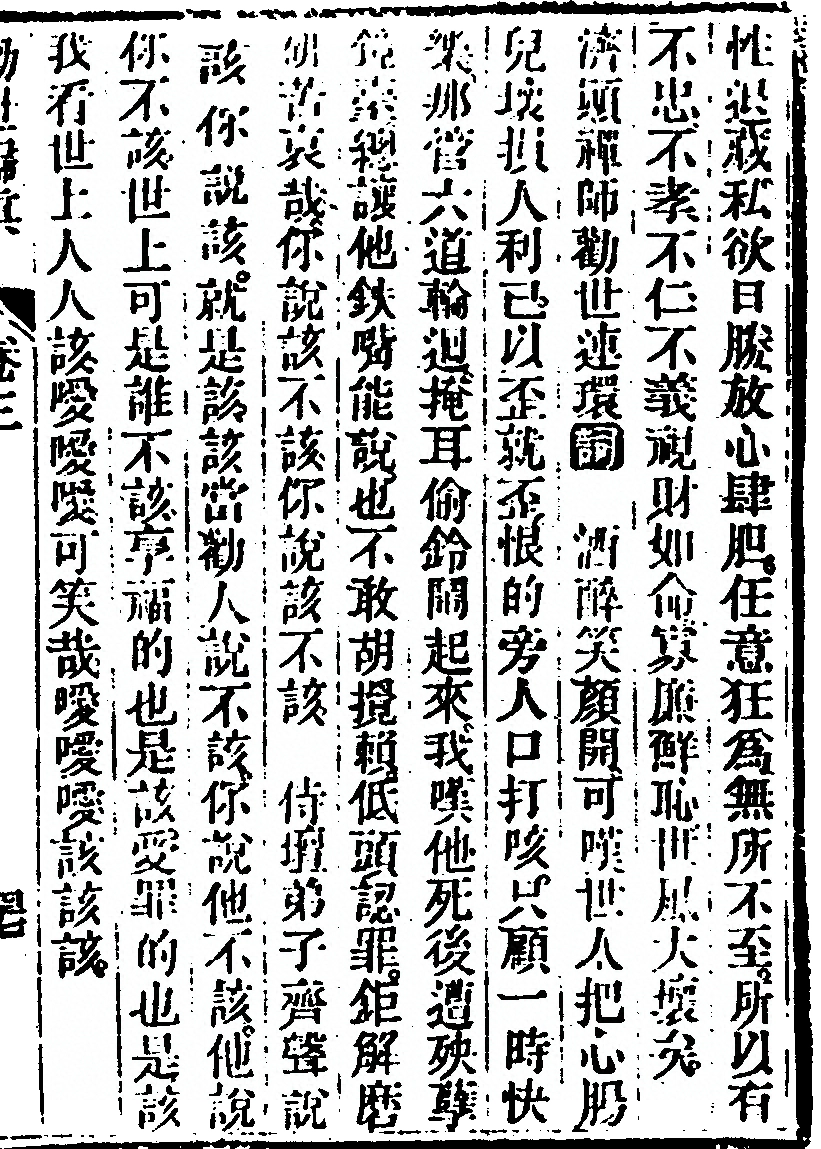 性退滅私欲日勝放心肆胆任意狂為無所不至所以有
不忠不孝不仁不義視財如命寡廉鮮恥世風大壞矣
濟顛禪師勸世連環詞　酒醉笑顏開可嘆世人把心肠
兒壞損人利己以歪就歪恨的旁人口打咳只顧一時快
樂那管六道輪迴掩耳偷鈴鬧起來我嘆他死後遭殃孽
鏡臺纔讓他鉄嘴能説也不敢胡攪賴低頭認罪鉅解磨
研苦哀哉你説該不該你説該不該　侍壇弟子齊聲説
該你説該就是該該當勸人説不該你説他不該他説
你不該世上可是誰不該享福的也是該愛罪的也是該
我看世上人人該噯噯噯可笑哉噯噯噯該該該
卷三